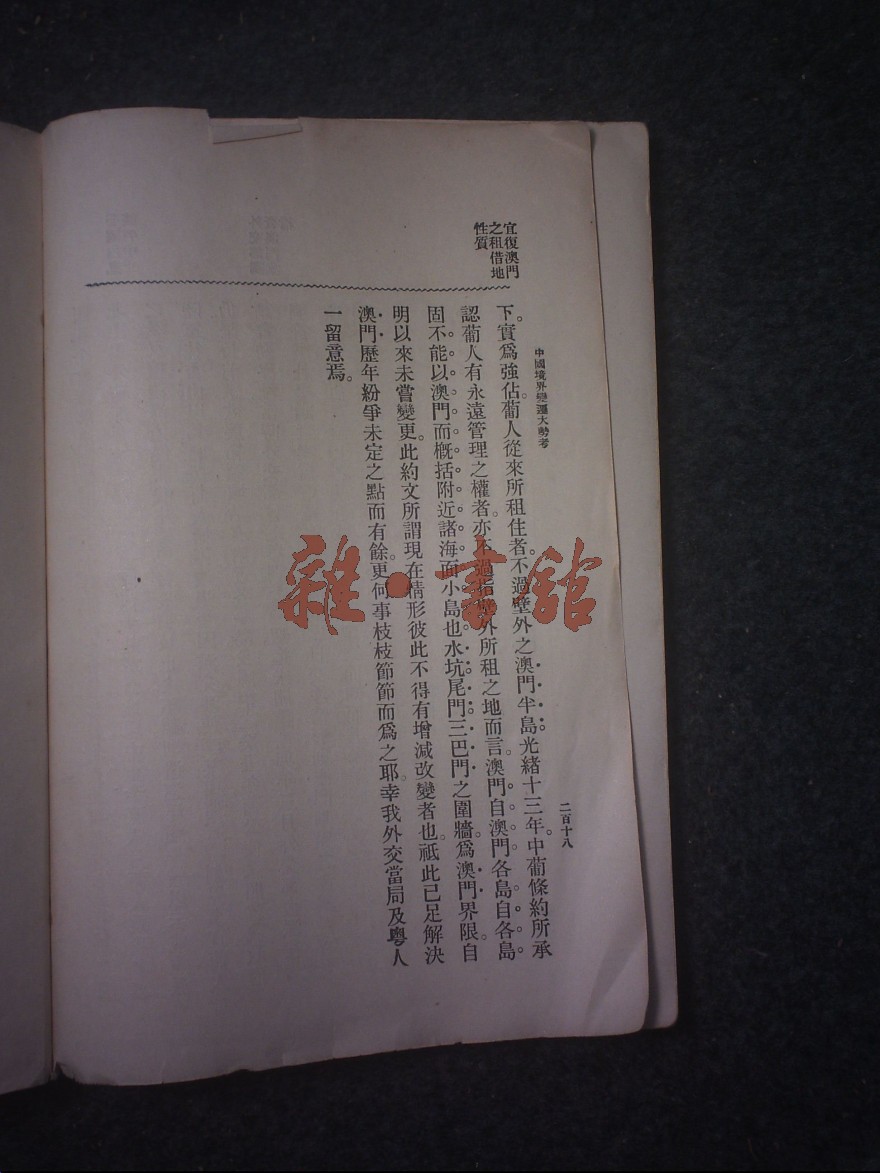 宜復澳門
之租借地
性質
中國境界變遷大勢考
二百十八
下。實爲強佔。葡人從來所租住者。不過壁外之澳門半島。光緒十三年。中葡條約所承
認葡人有永遠管理之權者。亦不過指壁外所租之地而言。澳門自澳門。各島自各島。
固不能以澳門而概括附近諸海面小島也。水坑尾門三巴門之圍牆。爲澳門界限。自
明以來未嘗變更。此約文所謂現在情形彼此不得有增減改變者也。祗此已足解決
澳門歷年紛爭未定之點而有餘。更何事枝枝節節而爲之耶。幸我外交當局及粵人
一留意焉。
雜·書館